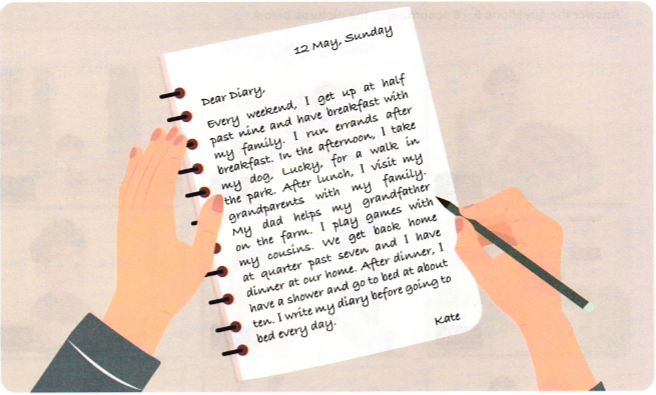 12 May, Sunday
Dear Diary,
Every weekend, I get up at half
past nine and have breakfast with
my family. I run errands after
breakfast. In the afternoon, I take
my dog, Lucky, for a walk in
the park. After lunch, I visit my
grandparents with my family.
My dad helps my grandfather
on the farm. I play games with
my cousins. We get back home
at quarter past seven and I have
dinner at our home. After dinner, I
have a shower and go to bed at about
ten. I write my diary before going to
bed every day.
Kate